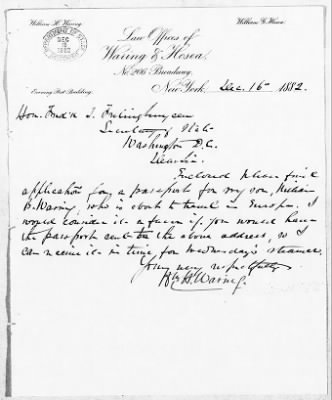 William H. Waring. William G. Hosea.
Law Offices of
Waring & Hosea,
No. 206 Broadway,
Evening Post Building.
New York, Dec. 15 1882.
DEPARTMENT OF STATE
DEC 16 1882
Hon. Fred'k T. Frelinghuysen
Secretary of State
Washington D.C.
Dear Sir:
Enclosed please find
application for a passport for my son, William
B. Waring, who is about to travel in Europe. I
would consider it a favor if you would have
the passport sent to the above address, so I
can receive it in time for Wednesday's steamer.
Yours very respectfully
Wm H. Waring.